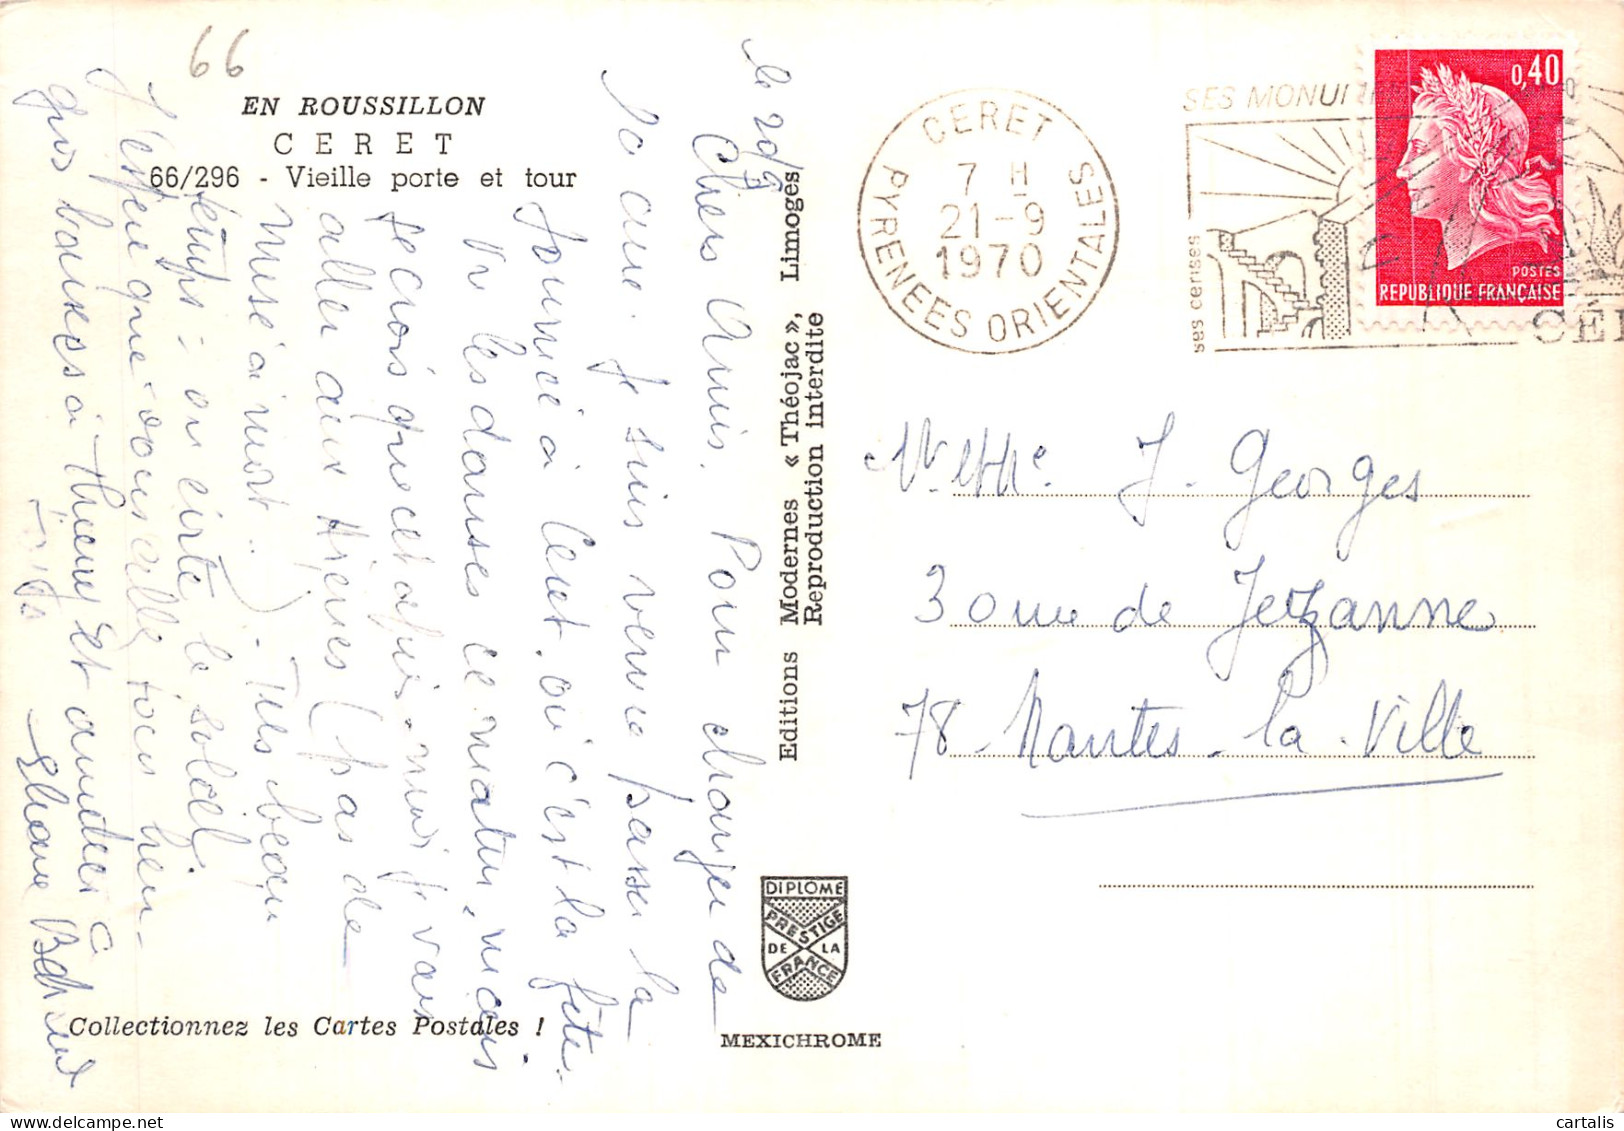 66
EN ROUSSILLON
CERET
66/296 - Vieille porte et tour
le 20/9
Chers Amis. Pour changer de
je suis venue passer la
journée à Ceret, où c'est la fête.
Vu les danses ce matin, mais
je crois que cet après-midi je vais
aller aux Arènes (pas de
mise à mort.). Très beau
temps : on évite le soleil,
J'espère que vous allez tous bien.
gros baisers à Thierry et amitiés à
Eliane
Collectionnez les Cartes Postales !
Editions Modernes « Théojac », Limoges
Reproduction interdite
DIPLOME
PRESTIGE
DE LA
FRANCE
MEXICHROME
CERET
7 H
21-9
1970
PYRENEES ORIENTALES
SES MONUI
ses cerises
0,40
POSTES
REPUBLIQUE FRANÇAISE
J. Georges
3 de
78 - Mantes - la - Ville